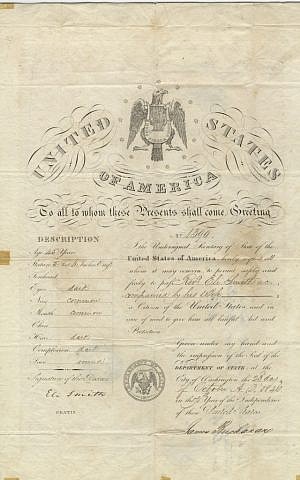 UNITED STATES
OF AMERICA
To all to whom these Presents shall come Greeting
No 1300.
DESCRIPTION
Age Years
Stature Feet Inches Eng.
Forehead
Eyes dark
Nose common
Mouth common
Chin
Hair dark
Complexion dark
Face
Signature of the Bearer
Eli Smith
GRATIS
I the Undersigned Secretary of State of the
United States of America hereby request all
whom it may concern to permit safely and
freely to pass Revd. Eli Smith ac-
companied by his wife
a Citizen of the United States and in
case of need to give him all lawful Aid and
Protection
Given under my hand and
the impression of the Seal of the
DEPARTMENT OF STATE at the
City of Washington the 28 day
of October A.D. 1846
in the Year of the Independence
of these United States
James Buchanan